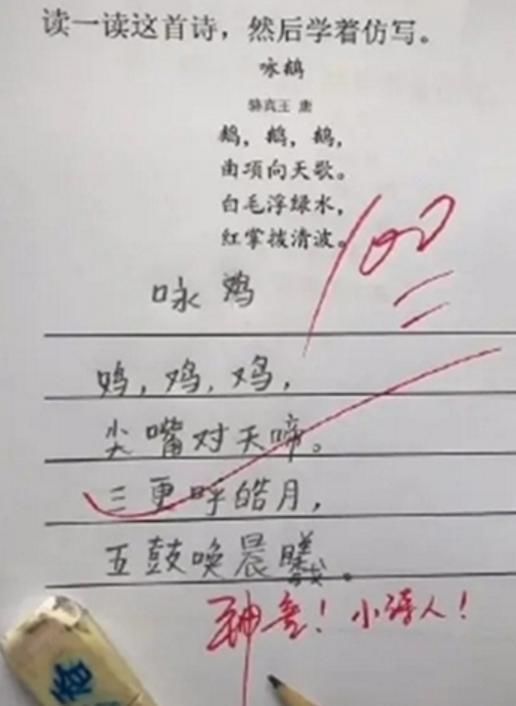 读一读这首诗，然后学着仿写。
咏鹅
骆宾王 唐
鹅，鹅，鹅，
曲项向天歌。
白毛浮绿水，
红掌拨清波。
100
咏鸡
鸡，鸡，鸡，
尖嘴对天啼。
三更呼皓月，
五鼓唤晨曦。
神童！小诗人！